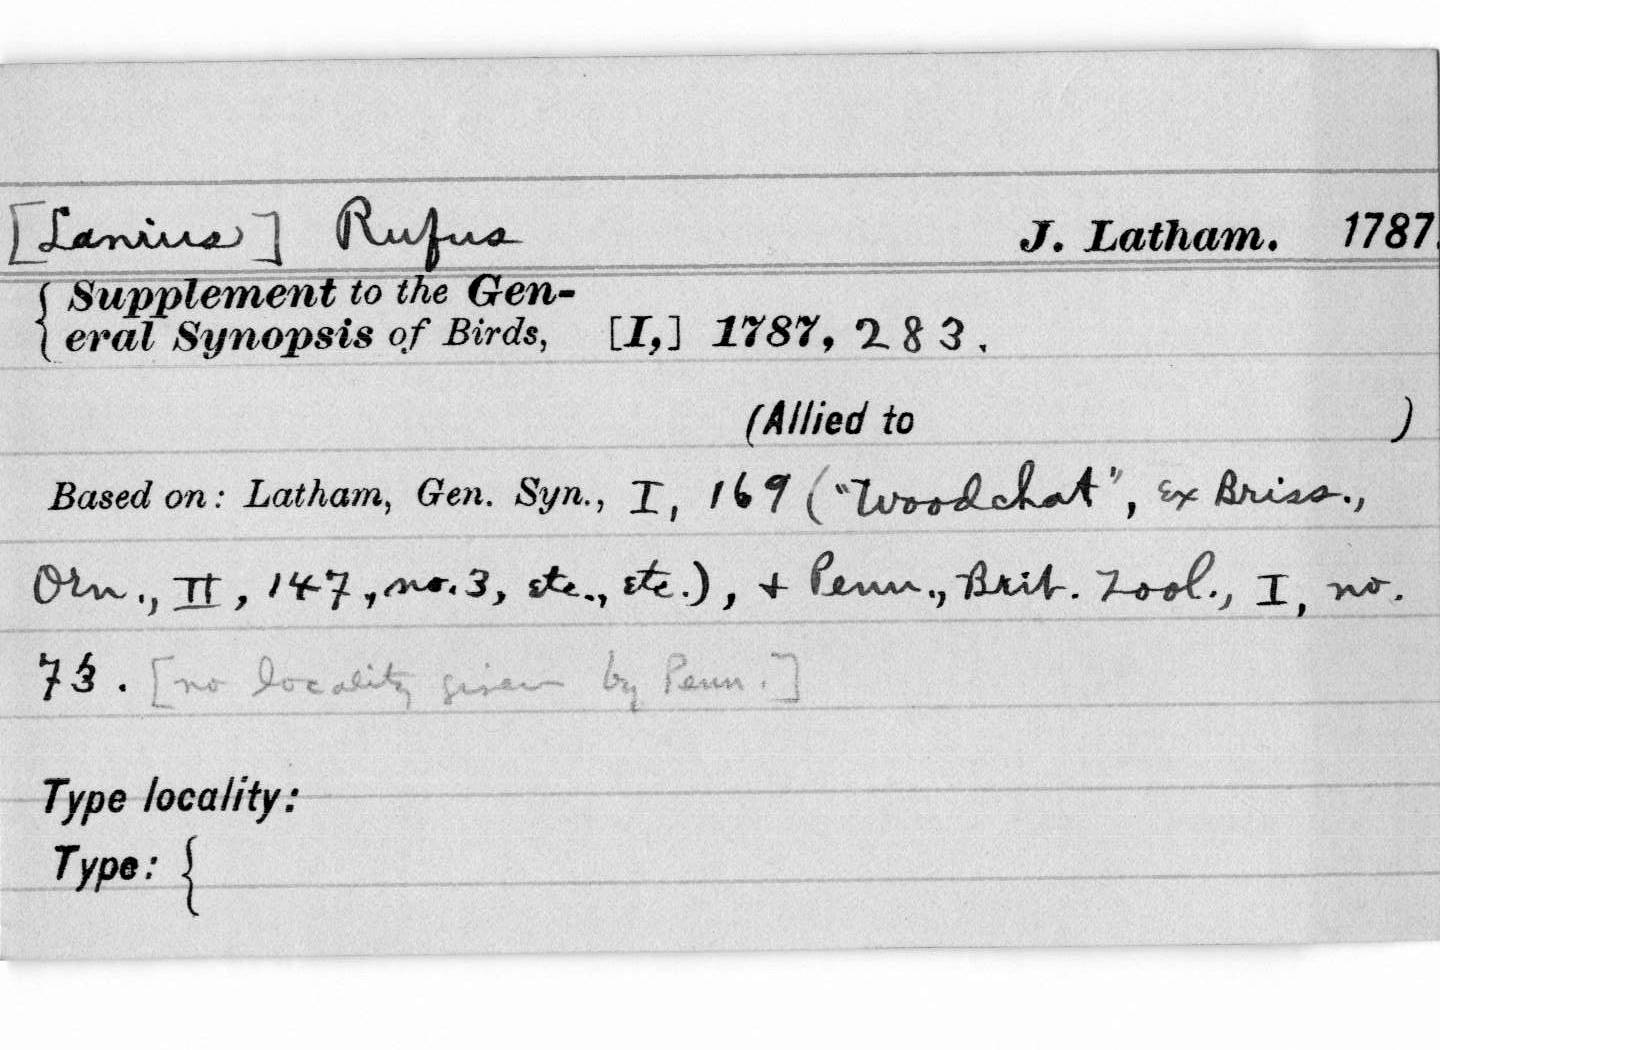 [Lanius] Rufus J. Latham. 1787.
{ Supplement to the Gen-
eral Synopsis of Birds, [I,] 1787, 283.
(Allied to )
Based on: Latham, Gen. Syn., I, 169 ("Woodchat", ex Briss.,
Orn., II, 147, no. 3, etc., etc.), + Penn., Brit. Zool., I, no.
73. [no locality given by Penn.]
Type locality:
Type: {